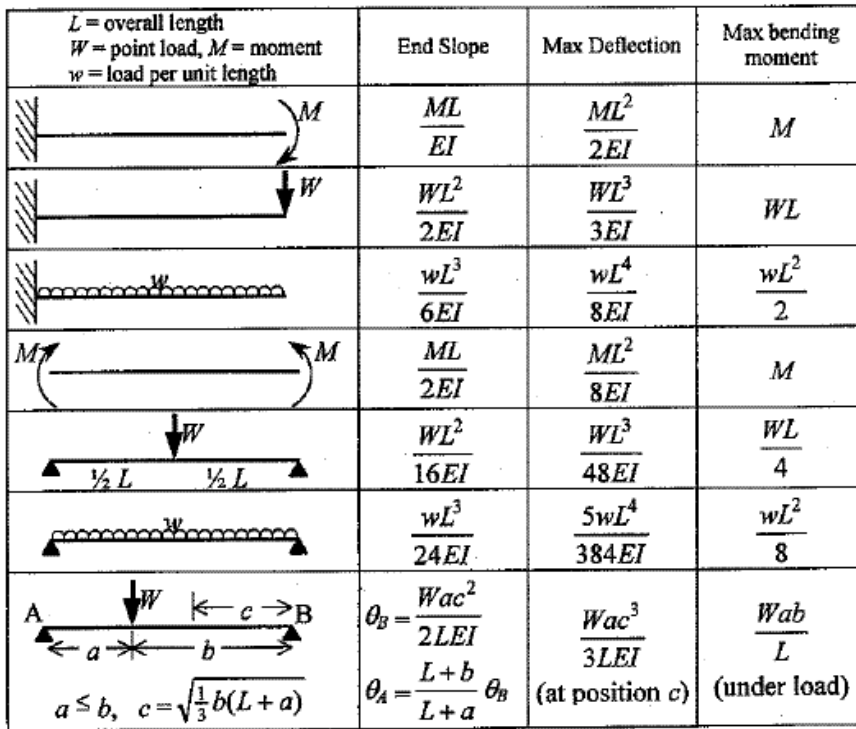 L = overall length
W = point load, M = moment
w = load per unit length
End Slope
Max Deflection
Max bending moment
M
ML/EI
ML²/2EI
M
W
WL²/2EI
WL³/3EI
WL
w
wL³/6EI
wL⁴/8EI
wL²/2
M M
ML/2EI
ML²/8EI
M
W
½ L ½ L
WL²/16EI
WL³/48EI
WL/4
w
wL³/24EI
5wL⁴/384EI
wL²/8
A W c B
a b
a ≤ b, c = √(⅓b(L + a))
θ_B = Wac²/2LEI
θ_A = (L + b)/(L + a) θ_B
Wac³/3LEI
(at position c)
Wab/L
(under load)